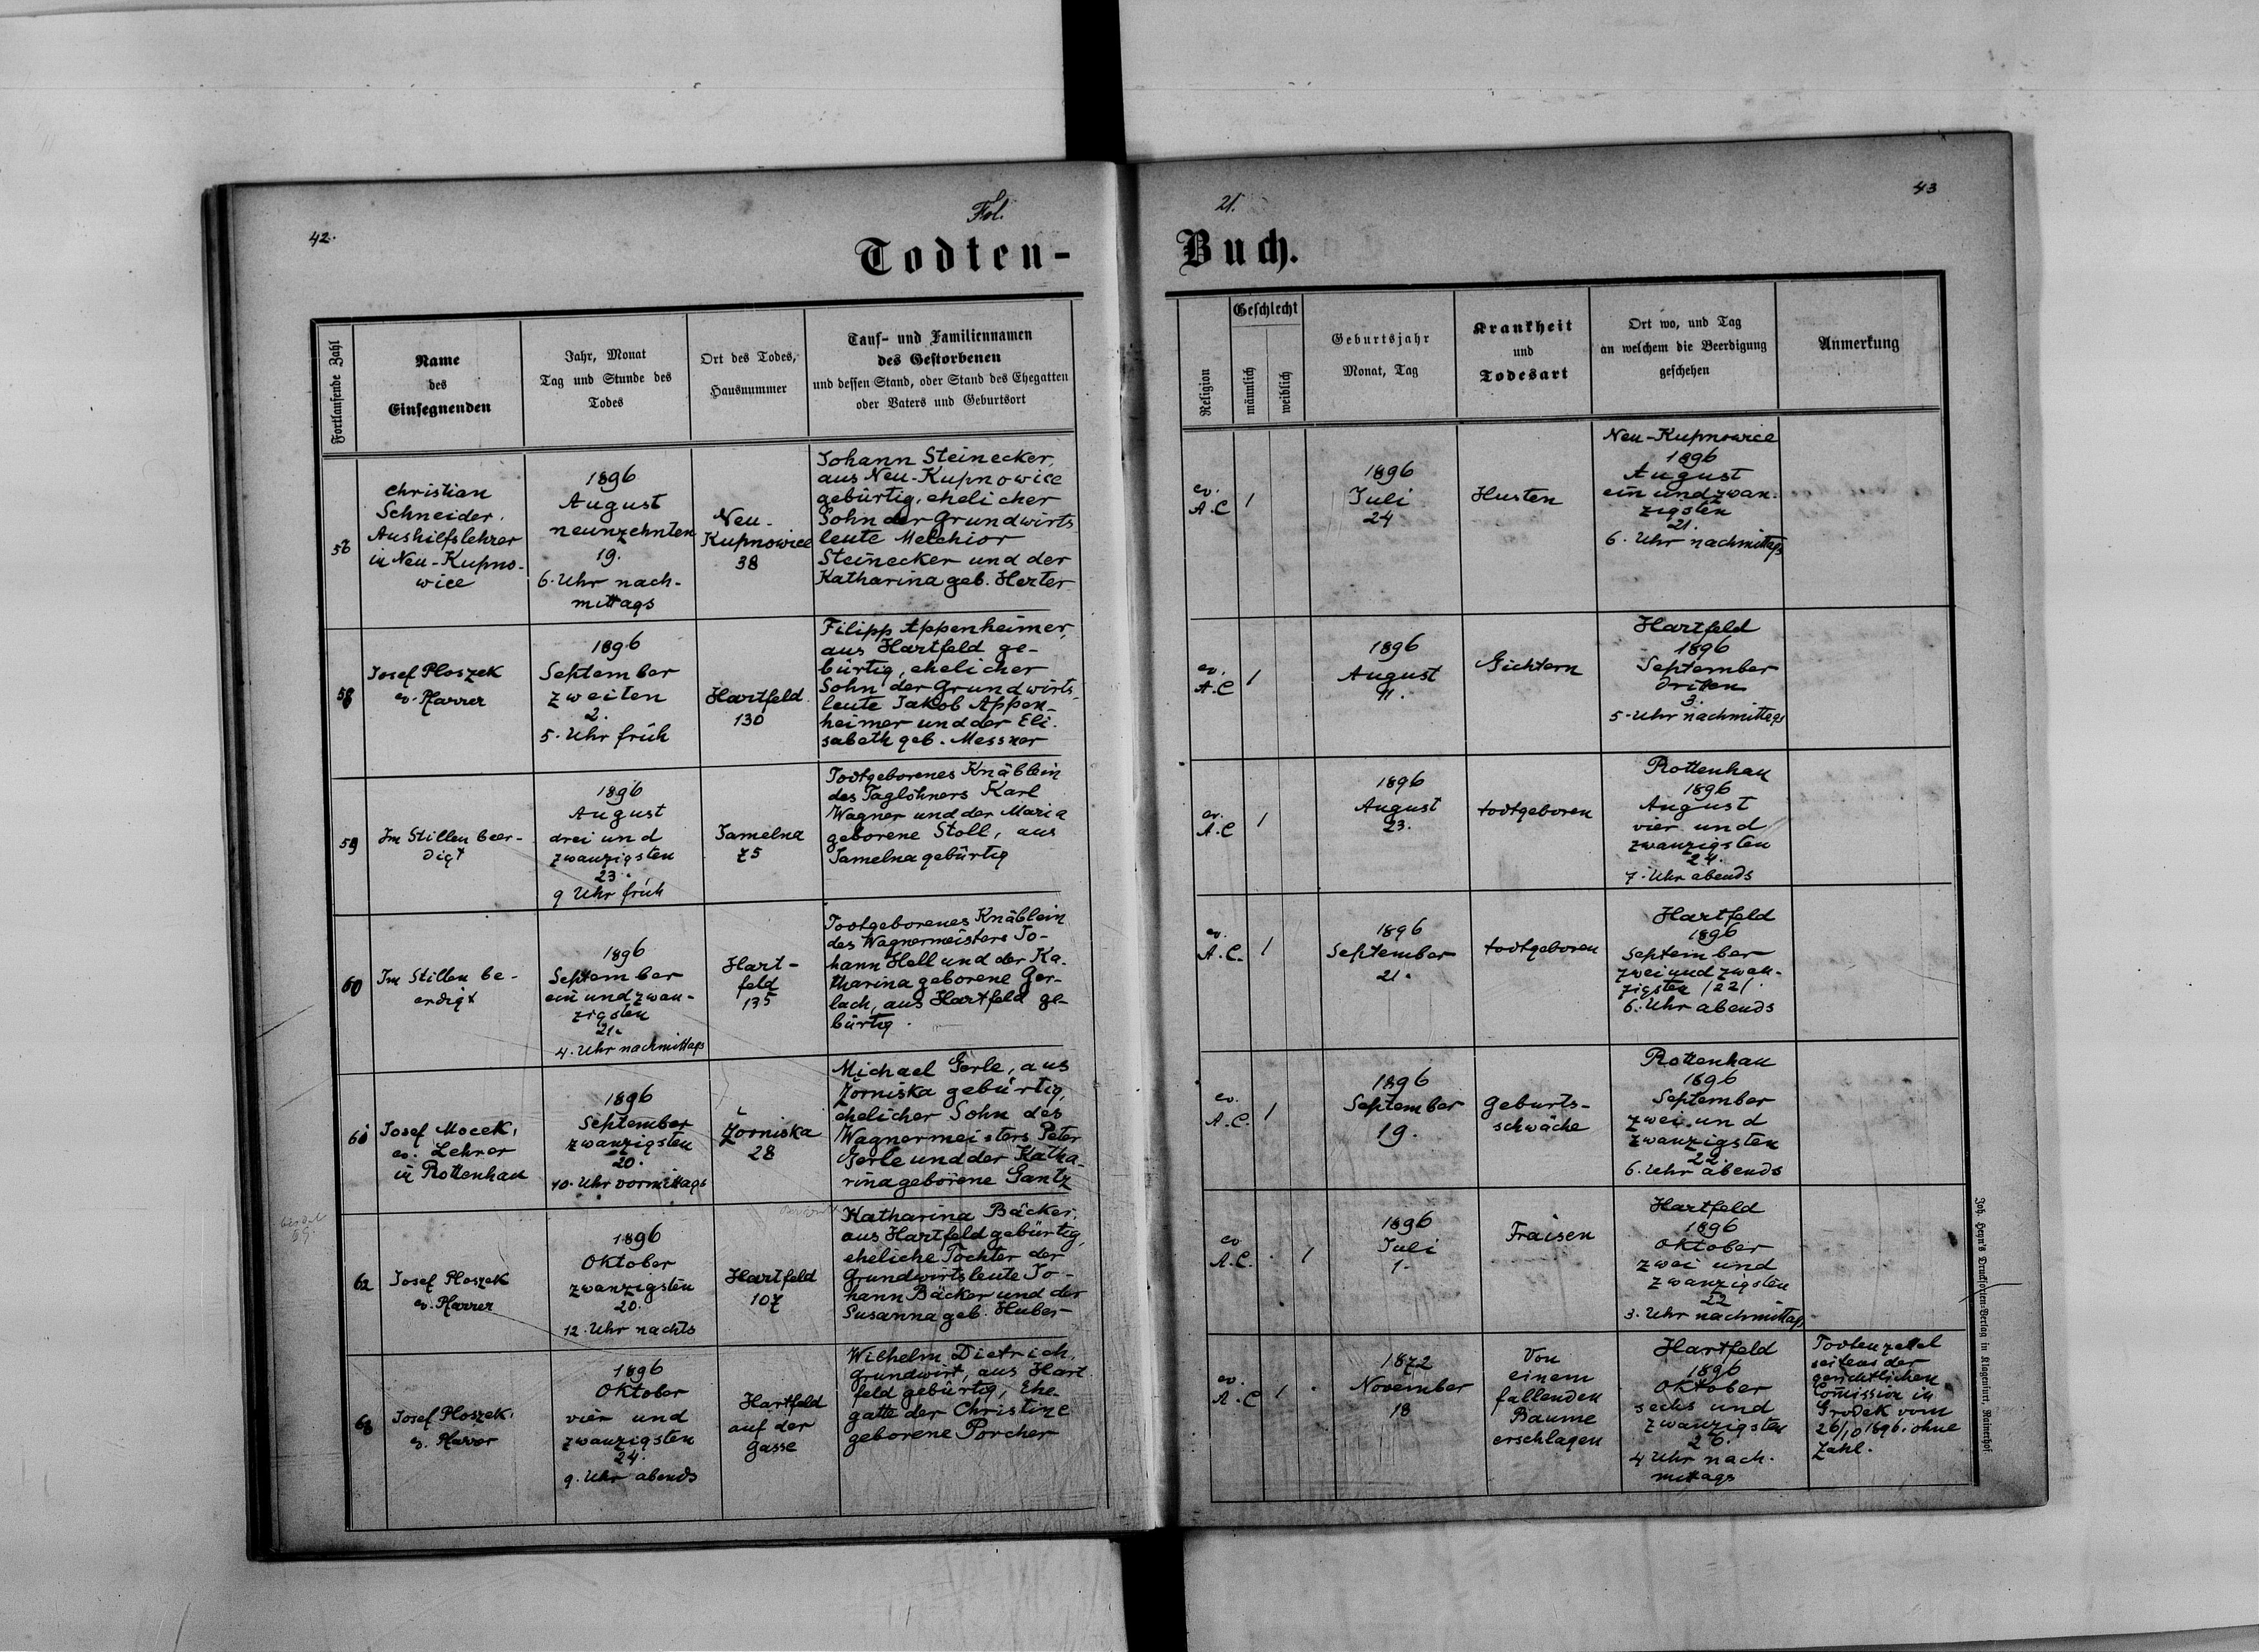 42.
Fol.
Todten-
Fortlaufende Zahl
Name
des
Einsegnenden
Jahr, Monat
Tag und Stunde des
Todes
Ort des Todes,
Hausnummer
Tauf- und Familiennamen
des Gestorbenen
und dessen Stand, oder Stand des Ehegatten
oder Vaters und Geburtsort
Christian
Schneider,
Aushilfslehrer
in Neu-Kupno-
wice
1896
August
neunzehnten
19.
6. Uhr nach-
mittags
Neu-
Kupnowice
38
Johann Steinecker,
aus Neu-Kupnowice
gebürtig, ehelicher
Sohn der Grundwirts
leute Melchior
Steinecker und der
Katharina geb. Herter
58
Josef Ploszek
ev. Pfarrer
1896
September
zweiten
2.
5. Uhr früh
Hartfeld
130
Filipp Appenheimer,
aus Hartfeld ge-
bürtig, ehelicher
Sohn der Grundwirts
leute Jakob Appen-
heimer und der Eli-
sabeth geb. Messner
59
Im Stillen beer-
digt
1896
August
drei und
zwanzigsten
23.
9 Uhr früh
Jamelna
75
Todtgeborenes Knäblein
des Taglöhners Karl
Wagner und der Maria
geborene Stoll, aus
Jamelna gebürtig
60
Im Stillen be-
erdigt
1896
September
ein und zwan-
zigsten
21.
4. Uhr nachmittags
Hart-
feld
135
Todtgeborenes Knäblein
des Wagnermeisters Jo-
hann Hell und der Ka-
tharina geborene Ger-
lach, aus Hartfeld ge-
bürtig.
61
Josef Mocek,
ev. Lehrer
in Rottenhan
1896
September
zwanzigsten
20.
10. Uhr vormittags
Zorniska
28
Michael Gerle, aus
Zorniska gebürtig,
ehelicher Sohn des
Wagnermeisters Peter
Gerle und der Katha-
rina geborene Gantz
62
Josef Ploszek
ev. Pfarrer
1896
Oktober
zwanzigsten
20.
12. Uhr nachts
Hartfeld
107
Katharina Bäcker,
aus Hartfeld gebürtig,
eheliche Tochter der
Grundwirtsleute Jo-
hann Bäcker und der
Susanna geb. Huber
63
Josef Ploszek,
ev. Pfarrer
1896
Oktober
vier und
zwanzigsten
24.
9. Uhr abends
Hartfeld
auf der
Gasse
Wilhelm Dietrich,
Grundwirt, aus Hart
feld gebürtig, Ehe-
gatte der Christine
geborene Porcher
21.
43
Buch.
Religion
Geschlecht
männlich
weiblich
Geburtsjahr
Monat, Tag
Krankheit
und
Todesart
Ort wo, und Tag
an welchem die Beerdigung
geschehen
Anmerkung
ev.
A.C
1
1896
Juli
24
Husten
Neu-Kupnowice
1896
August
ein und zwan-
zigsten
21.
6. Uhr nachmittags
ev.
A.C
1
1896
August
11.
Gichtern
Hartfeld
1896
September
dritten
3.
5. Uhr nachmittags
ev.
A.C
1
1896
August
23.
todtgeboren
Rottenhan
1896
August
vier und
zwanzigsten
24.
7. Uhr abends
ev.
A.C.
1
1896
September
21.
todtgeboren
Hartfeld
1896
September
zwei und zwan-
zigsten /22/.
6. Uhr abends
ev.
A.C.
1
1896
September
19.
Geburts-
schwäche
Rottenhan
1896
September
zwei und
zwanzigsten
22.
6. Uhr abends
ev
A.C.
1
1896
Juli
1.
Fraisen
Hartfeld
1896
Oktober
zwei und
zwanzigsten
22
3. Uhr nachmittags
ev.
A.C
1
1872
November
18
Von
einem
fallenden
Baume
erschlagen
Hartfeld
1896
Oktober
sechs und
zwanzigsten
26.
4 Uhr nach-
mittags
Todtenzettel
seitens der
gerichtlichen
Comission in
Grodek vom
26/10 1896. ohne
Zahl.
Joh. Heyn's Drucksorten-Verlag in Klagenfurt, Rainerhof.